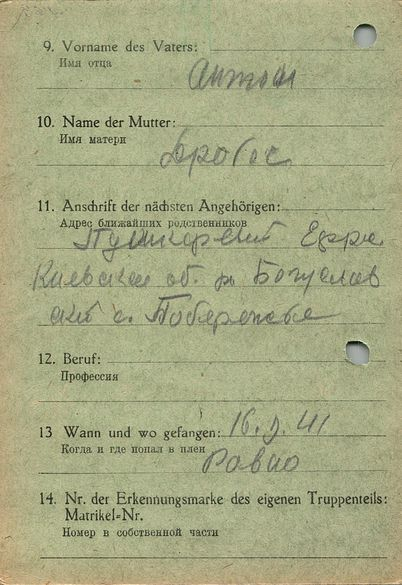 9. Vorname des Vaters:
Имя отца
Антон
10. Name der Mutter:
Имя матери
11. Anschrift der nächsten Angehörigen:
Адрес ближайших родственников
Киевская об. р. Богуслав
ский с. Побережье
12. Beruf:
Профессия
13 Wann und wo gefangen: 41
Когда и где попал в плен
Равно
14. Nr. der Erkennungsmarke des eigenen Truppenteils:
Matrikel-Nr.
Номер в собственной части